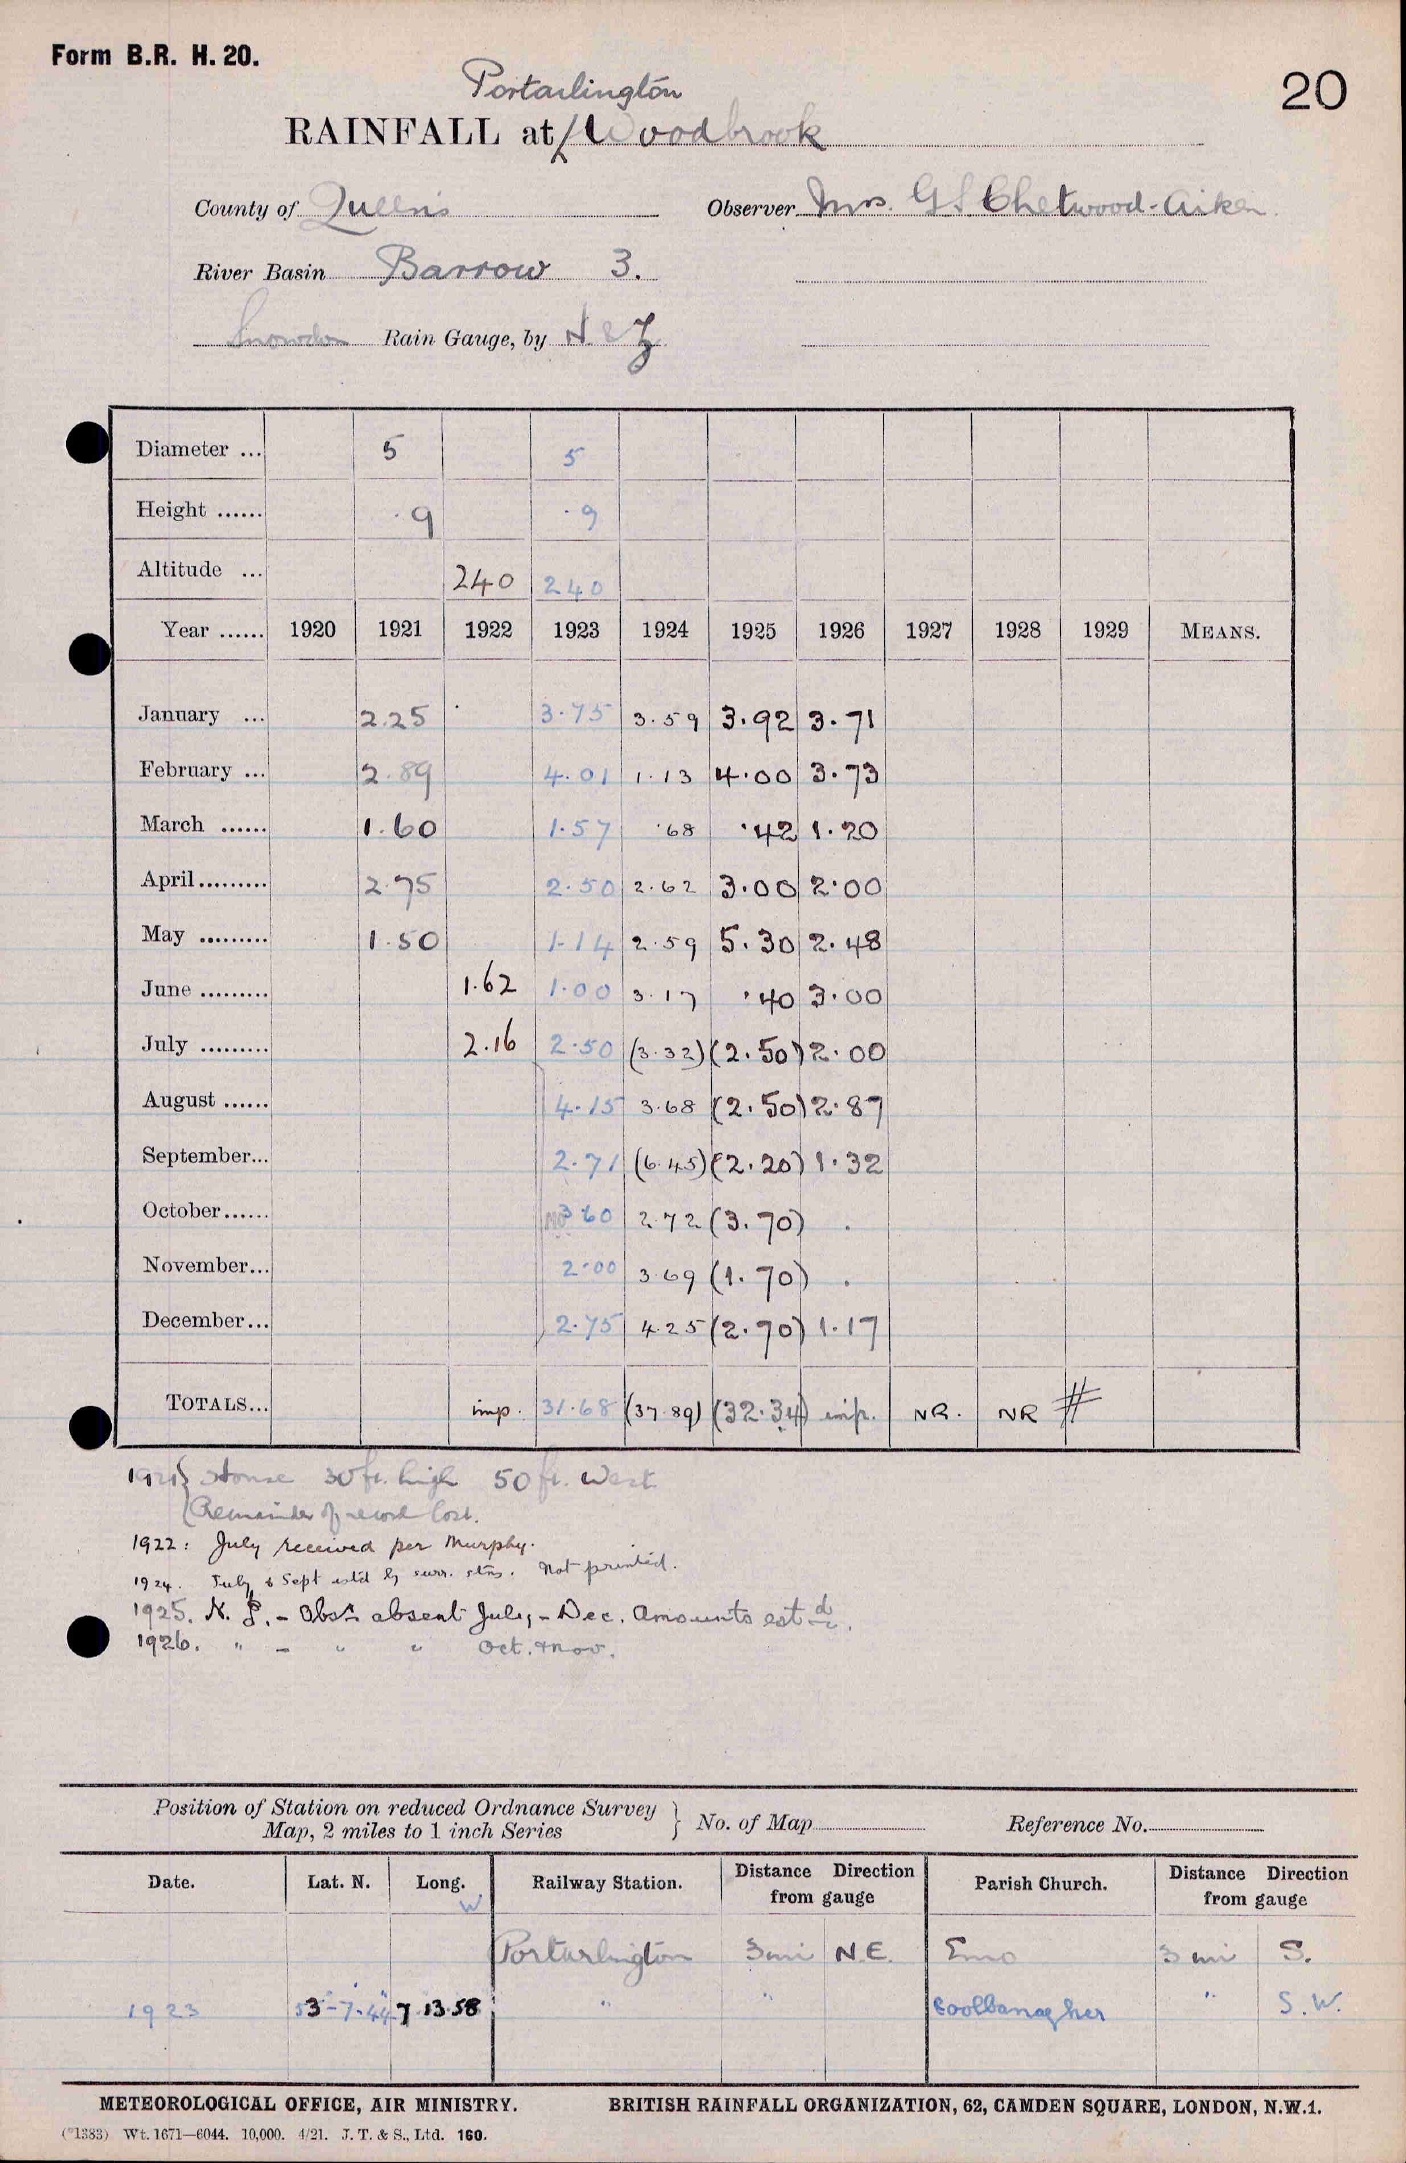 Form B.R. H. 20.
20
Portarlington
RAINFALL at Woodbrook
County of Queen's Observer Mrs. G S Chetwood-Aiken
River Basin Barrow 3.
Snowdon Rain Gauge, by N & Z
Diameter ... 5 5
Height ...... .9 .9
Altitude ... 240 240
Year ...... 1920 1921 1922 1923 1924 1925 1926 1927 1928 1929 MEANS.
January ... 2.25 3.75 3.59 3.92 3.71
February ... 2.89 4.01 1.13 4.00 3.73
March ...... 1.60 1.57 .68 .42 1.20
April ......... 2.75 2.50 2.62 3.00 2.00
May ......... 1.50 1.14 2.59 5.30 2.48
June ......... 1.62 1.00 3.17 .40 3.00
July ......... 2.16 2.50 (3.32) (2.50) 2.00
August ...... 4.15 3.68 (2.50) 2.87
September... 2.71 (6.45) (2.20) 1.32
October...... 3.60 2.72 (3.70) .
November... 2.00 3.69 (1.70) .
December... 2.75 4.25 (2.70) 1.17
TOTALS... imp. 31.68 (37.89) (32.34) imp. NR. NR #
1921 { House 30 ft. high 50 ft. West
(Remainder of record lost.
1922: July received per Murphy.
1924. July & Sept est'd by surr. stns. Not printed.
1925. N. P. - Obsr. absent July - Dec. Amounts estd.
1926. " - " " Oct. & Nov.
Position of Station on reduced Ordnance Survey
Map, 2 miles to 1 inch Series } No. of Map Reference No.
Date. Lat. N. Long. W Railway Station. Distance Direction from gauge Parish Church. Distance Direction from gauge
Portarlington 3 mi N.E. Emo 3 mi S.
1923 53-7-44 7 13 58 " " Coolbanagher " S.W.
METEOROLOGICAL OFFICE, AIR MINISTRY. BRITISH RAINFALL ORGANIZATION, 62, CAMDEN SQUARE, LONDON, N.W.1.
(*1383) Wt. 1671—6044. 10,000. 4/21. J. T. & S., Ltd. 160.